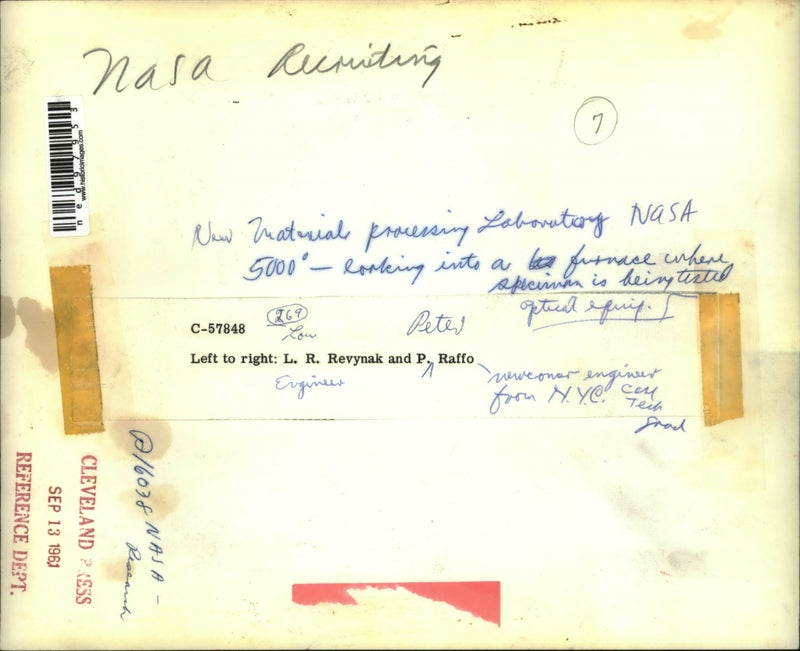 NASA Recruiting
7
ned97953
www.historicimages.com
New Materials processing Laboratory NASA
5000° — looking into a furnace where
specimen is being tested
optical equip.
C-57848
269
Lou
Peter
Left to right: L. R. Revynak and P. Raffo
Engineer
newcomer engineer
from N.Y.C. Case
Tech
Grad
CLEVELAND PRESS
SEP 13 1961
REFERENCE DEPT.
P16038 NASA -
Research